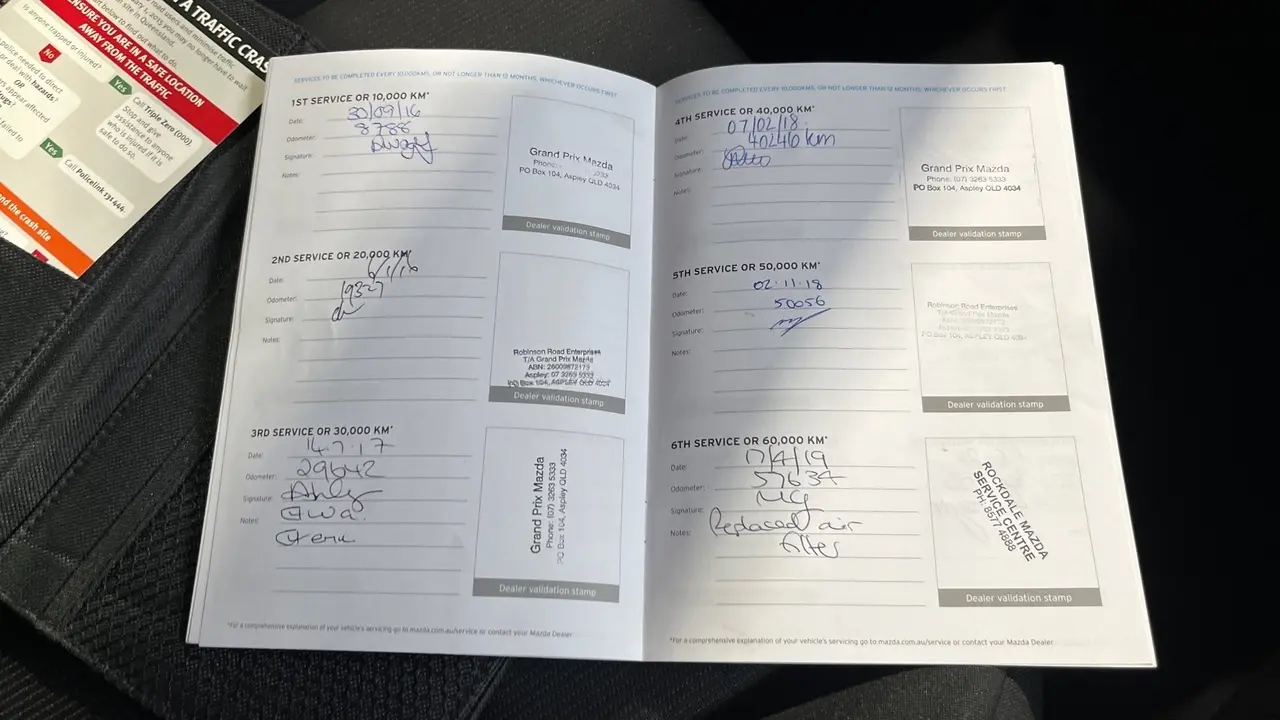 A TRAFFIC CRAS
road users and minimise traffic
2015 you may no longer have to wait
site in Queensland.
below to find out what to do.
ENSURE YOU ARE IN A SAFE LOCATION
AWAY FROM THE TRAFFIC
Is anyone trapped or injured?
No
Yes
Call Triple Zero (000).
Stop and give
assistance to anyone
who is injured if it is
safe to do so.
police needed to direct
or deal with hazards?
OR
appear affected
failed to
Yes
Call Policelink 131444.
the crash site
SERVICES TO BE COMPLETED EVERY 10,000KMS, OR NOT LONGER THAN 12 MONTHS, WHICHEVER OCCURS FIRST
1ST SERVICE OR 10,000 KM*
Date: 30/09/16
Odometer: 8788
Signature:
Notes:
Grand Prix Mazda
Phone:
PO Box 104, Aspley QLD 4034
Dealer validation stamp
2ND SERVICE OR 20,000 KM*
Date:
Odometer: 19327
Signature:
Notes:
Robinson Road Enterprises
T/A Grand Prix Mazda
ABN: 26009872173
Aspley: 07 3263 5333
PO Box 104, ASPLEY QLD 4034
Dealer validation stamp
3RD SERVICE OR 30,000 KM*
Date: 14.7.17
Odometer: 29642
Signature:
Notes:
Grand Prix Mazda
Phone: (07) 3263 5333
PO Box 104, Aspley QLD 4034
Dealer validation stamp
*For a comprehensive explanation of your vehicle's servicing go to mazda.com.au/service or contact your Mazda Dealer
SERVICES TO BE COMPLETED EVERY 10,000KMS, OR NOT LONGER THAN 12 MONTHS, WHICHEVER OCCURS FIRST
4TH SERVICE OR 40,000 KM*
Date: 07/02/18.
Odometer: 40246 km
Signature:
Notes:
Grand Prix Mazda
Phone: (07) 3263 5333
PO Box 104, Aspley QLD 4034
Dealer validation stamp
5TH SERVICE OR 50,000 KM*
Date: 02.11.18
Odometer: 50056
Signature:
Notes:
Robinson Road Enterprises
T/A Grand Prix Mazda
PO Box 104, ASPLEY QLD 4034
Dealer validation stamp
6TH SERVICE OR 60,000 KM*
Date: 17/4/19
Odometer: 57634
Signature:
Notes: Replaced air
filter
ROCKDALE MAZDA
SERVICE CENTRE
PH: 8577 4888
Dealer validation stamp
*For a comprehensive explanation of your vehicle's servicing go to mazda.com.au/service or contact your Mazda Dealer